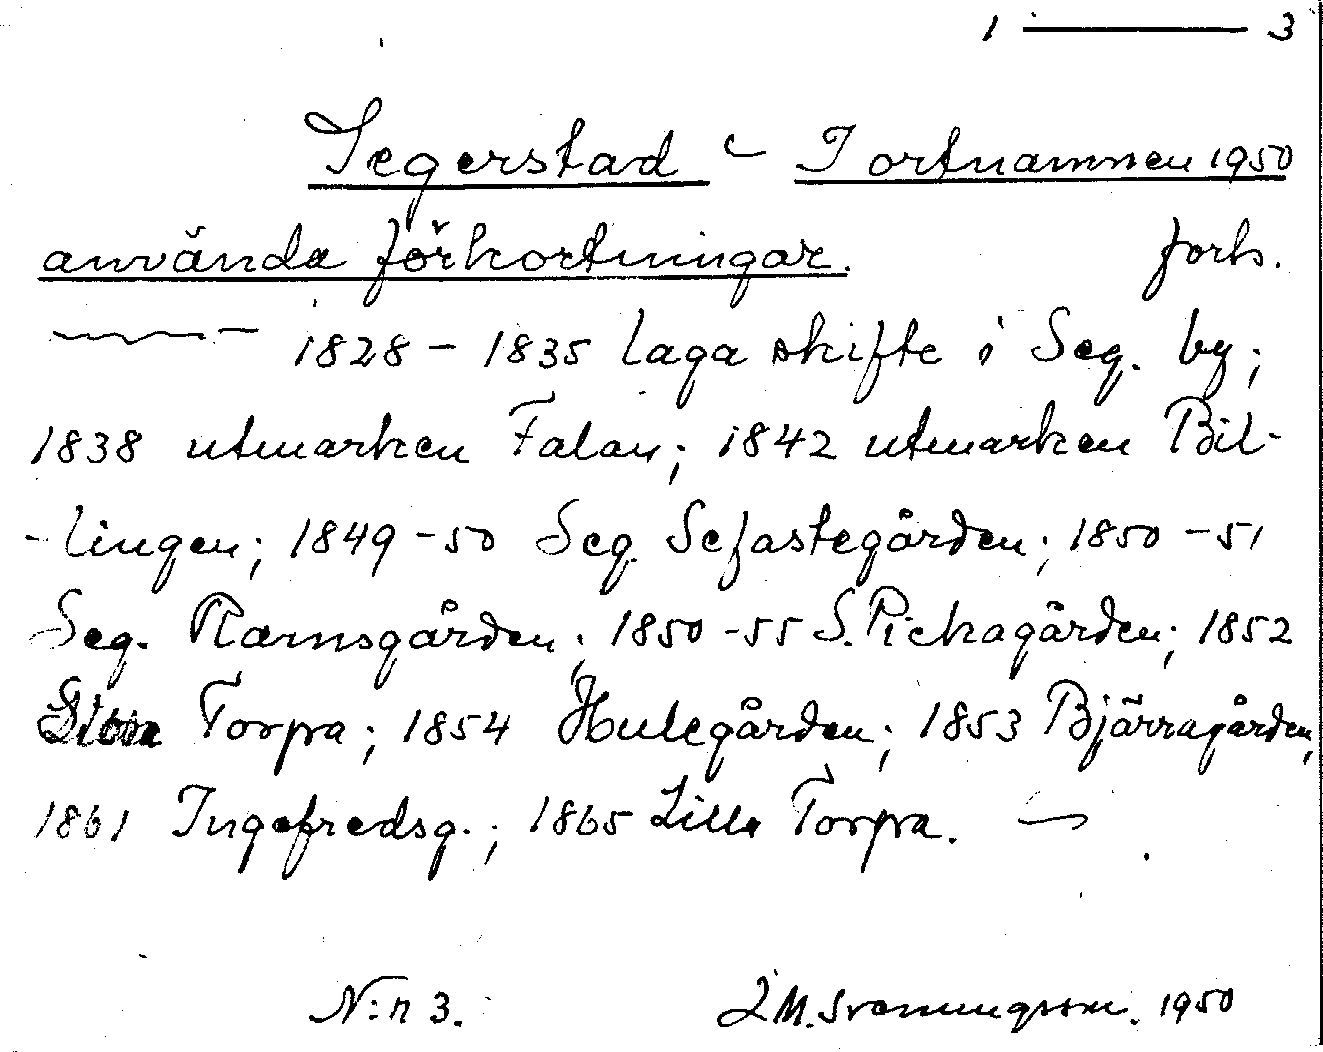 1 — 3
Segerstad – I ortnamnen 1950
använda förkortningar. forts.
1828 – 1835 laga skifte i Seg. by;
1838 utmarken Falan; 1842 utmarken Bil-
-lingen; 1849-50 Seg. Sefastegården; 1850-51
Seg. Ramsgården; 1850-55 S. Pickagården; 1852
Torpa; 1854 Hulegården; 1853 Bjärragården,
1861 Ingefredsg.; 1865 Lilla Torpa. —
N:r 3. M. Svenningsson. 1950